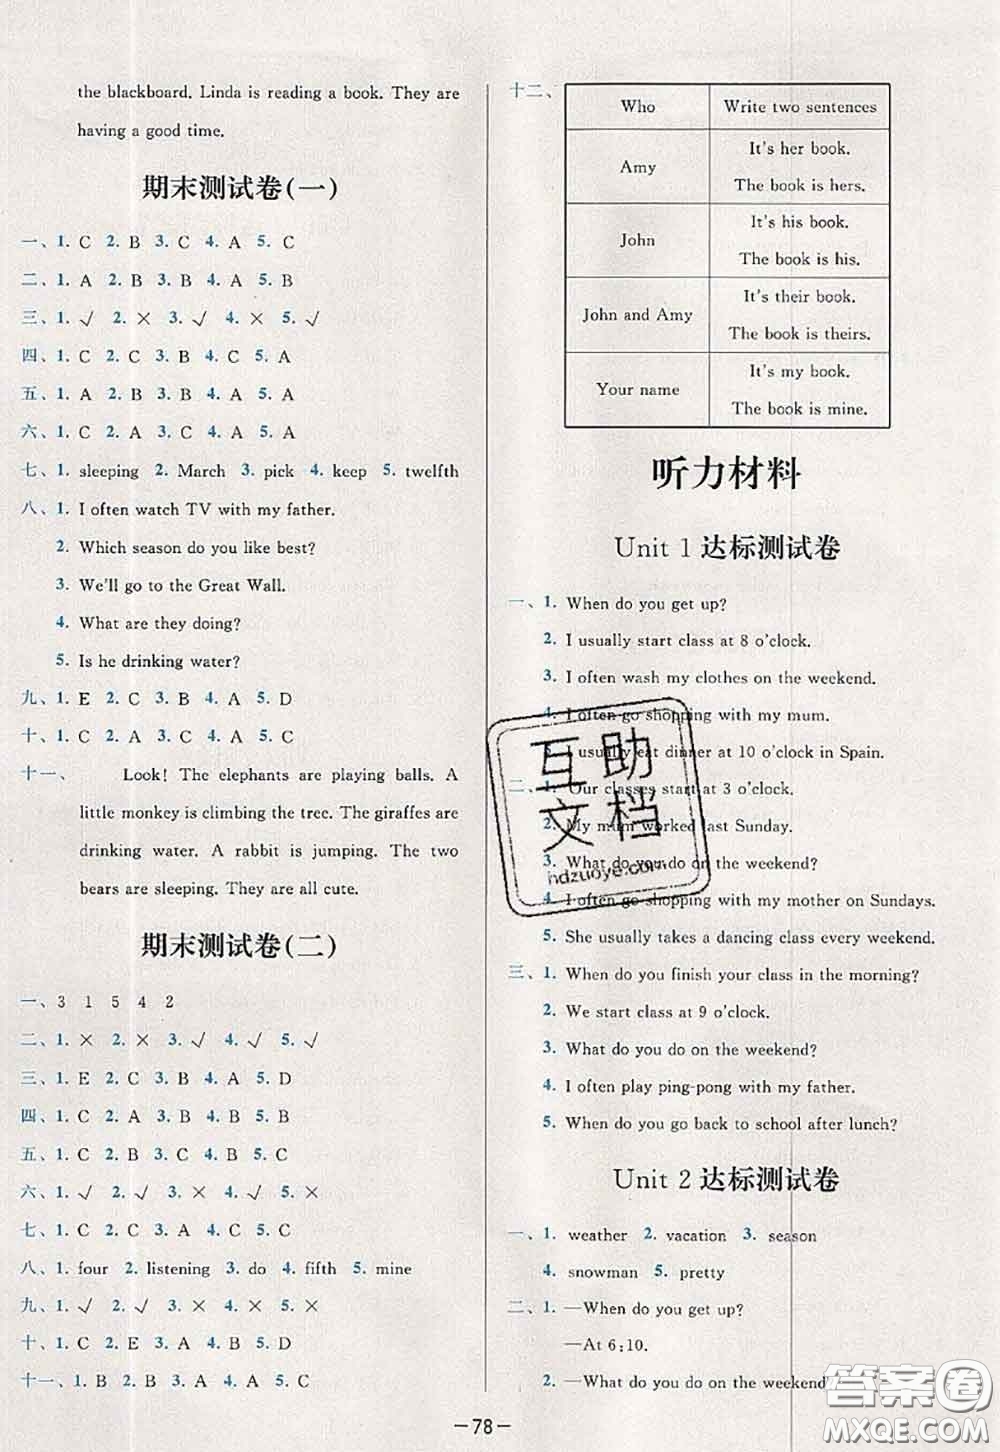 the blackboard. Linda is reading a book. They are
having a good time.
期末测试卷(一)
一、1. C 2. B 3. C 4. A 5. C
二、1. A 2. B 3. B 4. A 5. B
三、1. √ 2. × 3. √ 4. × 5. √
四、1. C 2. C 3. B 4. C 5. A
五、1. A 2. B 3. B 4. A 5. A
六、1. C 2. A 3. B 4. C 5. A
七、1. sleeping 2. March 3. pick 4. keep 5. twelfth
八、1. I often watch TV with my father.
2. Which season do you like best?
3. We'll go to the Great Wall.
4. What are they doing?
5. Is he drinking water?
九、1. E 2. C 3. B 4. A 5. D
十、1. C 2. A 3. B 4. A 5. C
十一、 Look! The elephants are playing balls. A
little monkey is climbing the tree. The giraffes are
drinking water. A rabbit is jumping. The two
bears are sleeping. They are all cute.
期末测试卷(二)
一、3 1 5 4 2
二、1. × 2. × 3. √ 4. √ 5. √
三、1. E 2. C 3. B 4. A 5. D
四、1. C 2. A 3. B 4. B 5. B
五、1. C 2. B 3. C 4. B 5. C
六、1. √ 2. √ 3. × 4. √ 5. ×
七、1. C 2. C 3. A 4. C 5. C
八、1. four 2. listening 3. do 4. fifth 5. mine
九、1. √ 2. √ 3. × 4. × 5. ×
十、1. C 2. E 3. A 4. B 5. D
十一、1. B 2. B 3. A 4. B 5. C
十二、
Who Write two sentences
Amy It's her book.
The book is hers.
John It's his book.
The book is his.
John and Amy It's their book.
The book is theirs.
Your name It's my book.
The book is mine.
听力材料
Unit 1 达标测试卷
一、1. When do you get up?
2. I usually start class at 8 o'clock.
3. I often wash my clothes on the weekend.
4. I often go shopping with my mum.
I usually eat dinner at 10 o'clock in Spain.
二、1. Our classes start at 3 o'clock.
2. My mum worked last Sunday.
3. What do you do on the weekend?
4. I often go shopping with my mother on Sundays.
5. She usually takes a dancing class every weekend.
三、1. When do you finish your class in the morning?
2. We start class at 9 o'clock.
3. What do you do on the weekend?
4. I often play ping-pong with my father.
5. When do you go back to school after lunch?
Unit 2 达标测试卷
一、1. weather 2. vacation 3. season
4. snowman 5. pretty
二、1. —When do you get up?
—At 6:10.
2. —What do you do on the weekend?
—78—
互助
文档
hdzuoye.com
答案圈
MXQE.COM